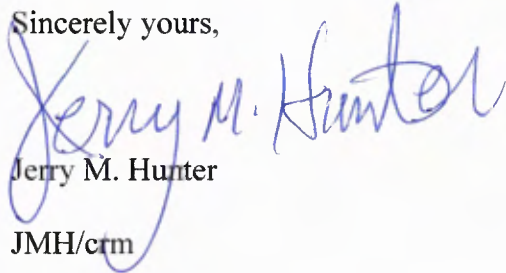 Sincerely yours,
Jerry M. Hunter
Jerry M. Hunter
JMH/crm